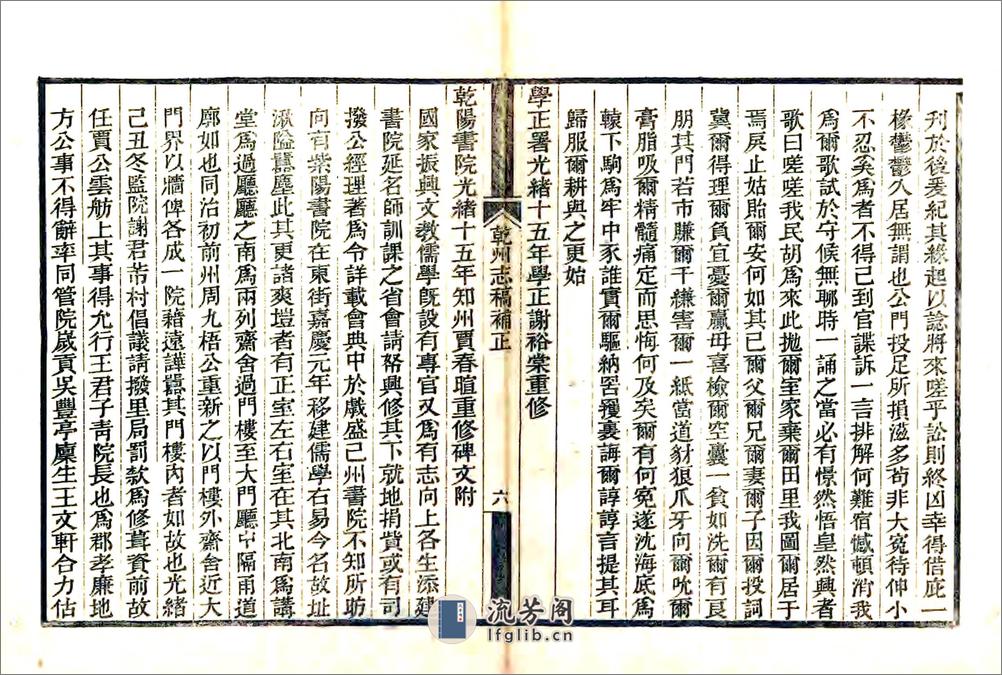 刋於後爰紀其緣起以諗將來嗟乎訟則終凶幸得借庇一
椽鬱鬱久居無謂也公門投足所損滋多苟非大寃待伸小
不忍奚爲者不得已到官諜訴一言排解何難宿憾頓消我
爲爾歌試於守候無聊時一誦之當必有憬然悟皇然興者
歌曰嗟嗟我民胡爲來此拋爾室家棄爾田里我圖爾居于
焉戾止姑貽爾安何如其已爾父爾兄爾妻爾子因爾投詞
冀爾得理爾負宜憂爾贏毋喜檢爾空囊一貧如洗爾有良
朋其門若市賺爾千縑害爾一紙當道豺狼爪牙向爾吮爾
膏脂吸爾精髓痛定而思悔何及矣爾有何寃遂沈海底爲
轅下駒爲牢中豕誰實爾驅納罟擭裏誨爾諄諄言提其耳
歸服爾耕與之更始
學正署光緒十五年學正謝裕棠重修
乾州志稿補正
六
乾陽書院光緒十五年知州賈春暄重修碑文附
國家振興文教儒學旣設有專官又爲有志向上各生添建
書院延名師訓課之省會請帑興修其下就地捐貲或有司
撥公經理著爲令詳載會典中於戲盛已州書院不知所昉
向有紫陽書院在東街嘉慶元年移建儒學右易今名故址
湫隘囂塵此其更諸爽塏者有正室左右室在其北南爲講
堂爲過廳廳之南爲兩列齋舍過門樓至大門廳中隔甬道
廓如也同治初前州周九梧公重新之以門樓外齋舍近大
門界以牆俾各成一院藉遠譁囂其門樓內者如故也光緒
己丑冬監院謝君芾村倡議請撥里局罰欵爲修葺資前故
任賈公雲舫上其事得允行王君子靑院長也爲郡孝廉地
方公事不得辭率同管院歲貢吳豐亭廩生王文軒合力估
流芳阁
lfglib.cn